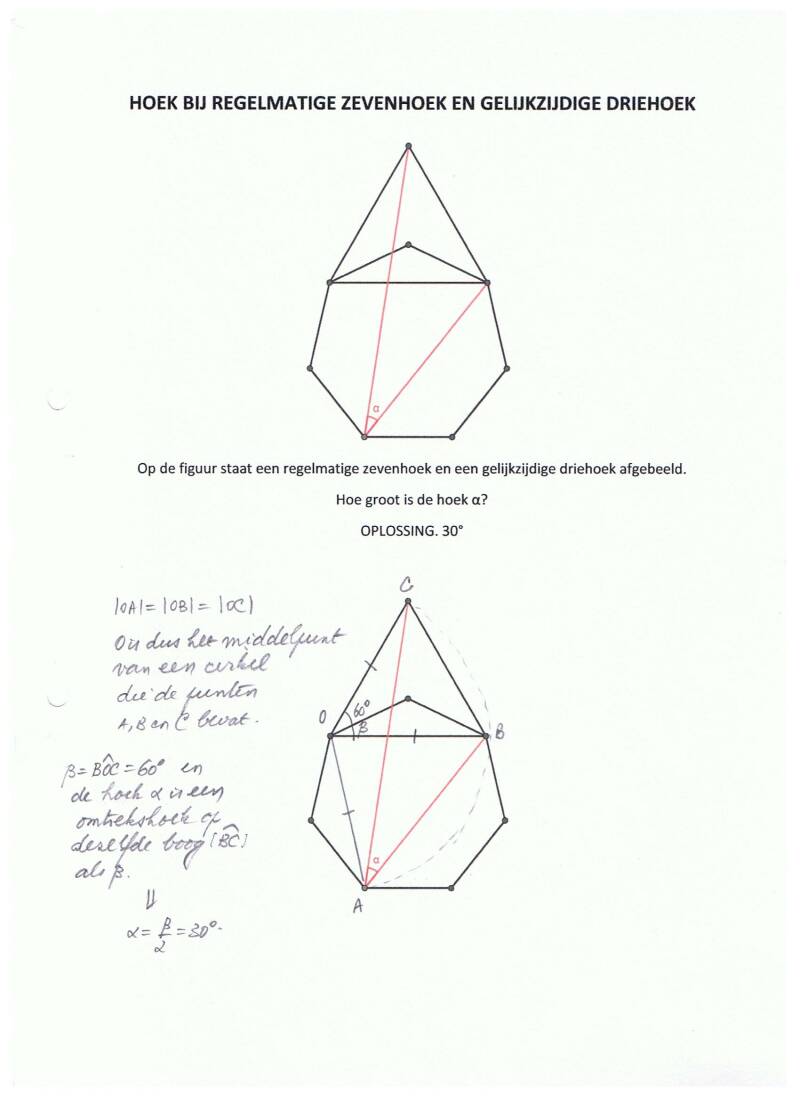 HOEK BIJ REGELMATIGE ZEVENHOEK EN GELIJKZIJDIGE DRIEHOEK
α
Op de figuur staat een regelmatige zevenhoek en een gelijkzijdige driehoek afgebeeld.
Hoe groot is de hoek α?
OPLOSSING. 30°
|OA| = |OB| = |OC|
O is dus het middelpunt
van een cirkel
die de punten
A, B en C bevat.
β = BÔC = 60° en
de hoek α is een
omtrekshoek op
dezelfde boog [BC]
als β.
⇓
α = β/2 = 30°.
C
O
60°
β
B
α
A